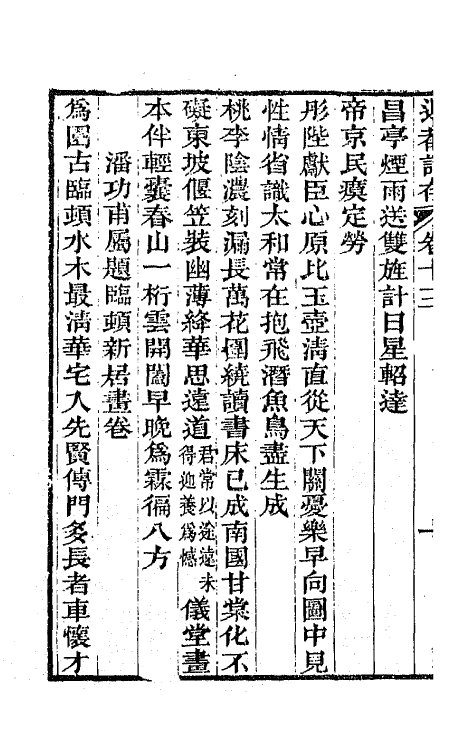 卷十三
一
昌亭煙雨送雙旌計日星軺達
帝京民瘼定勞
彤陛獻臣心原比玉壺清直從天下關憂樂早向圖中見
性情省識太和常在抱飛潛魚鳥盡生成
桃李陰濃刻漏長萬花圍繞讀書床已成南國甘棠化不
礙東坡偃笠裝幽薄絳華思遠道君常以途遠未得迎養為憾儀堂畫
本伴輕囊春山一桁雲開闔早晚為霖徧八方
潘功甫屬題臨頓新居畫卷
為園古臨頓水木最清華宅人先賢傳門多長者車懷才